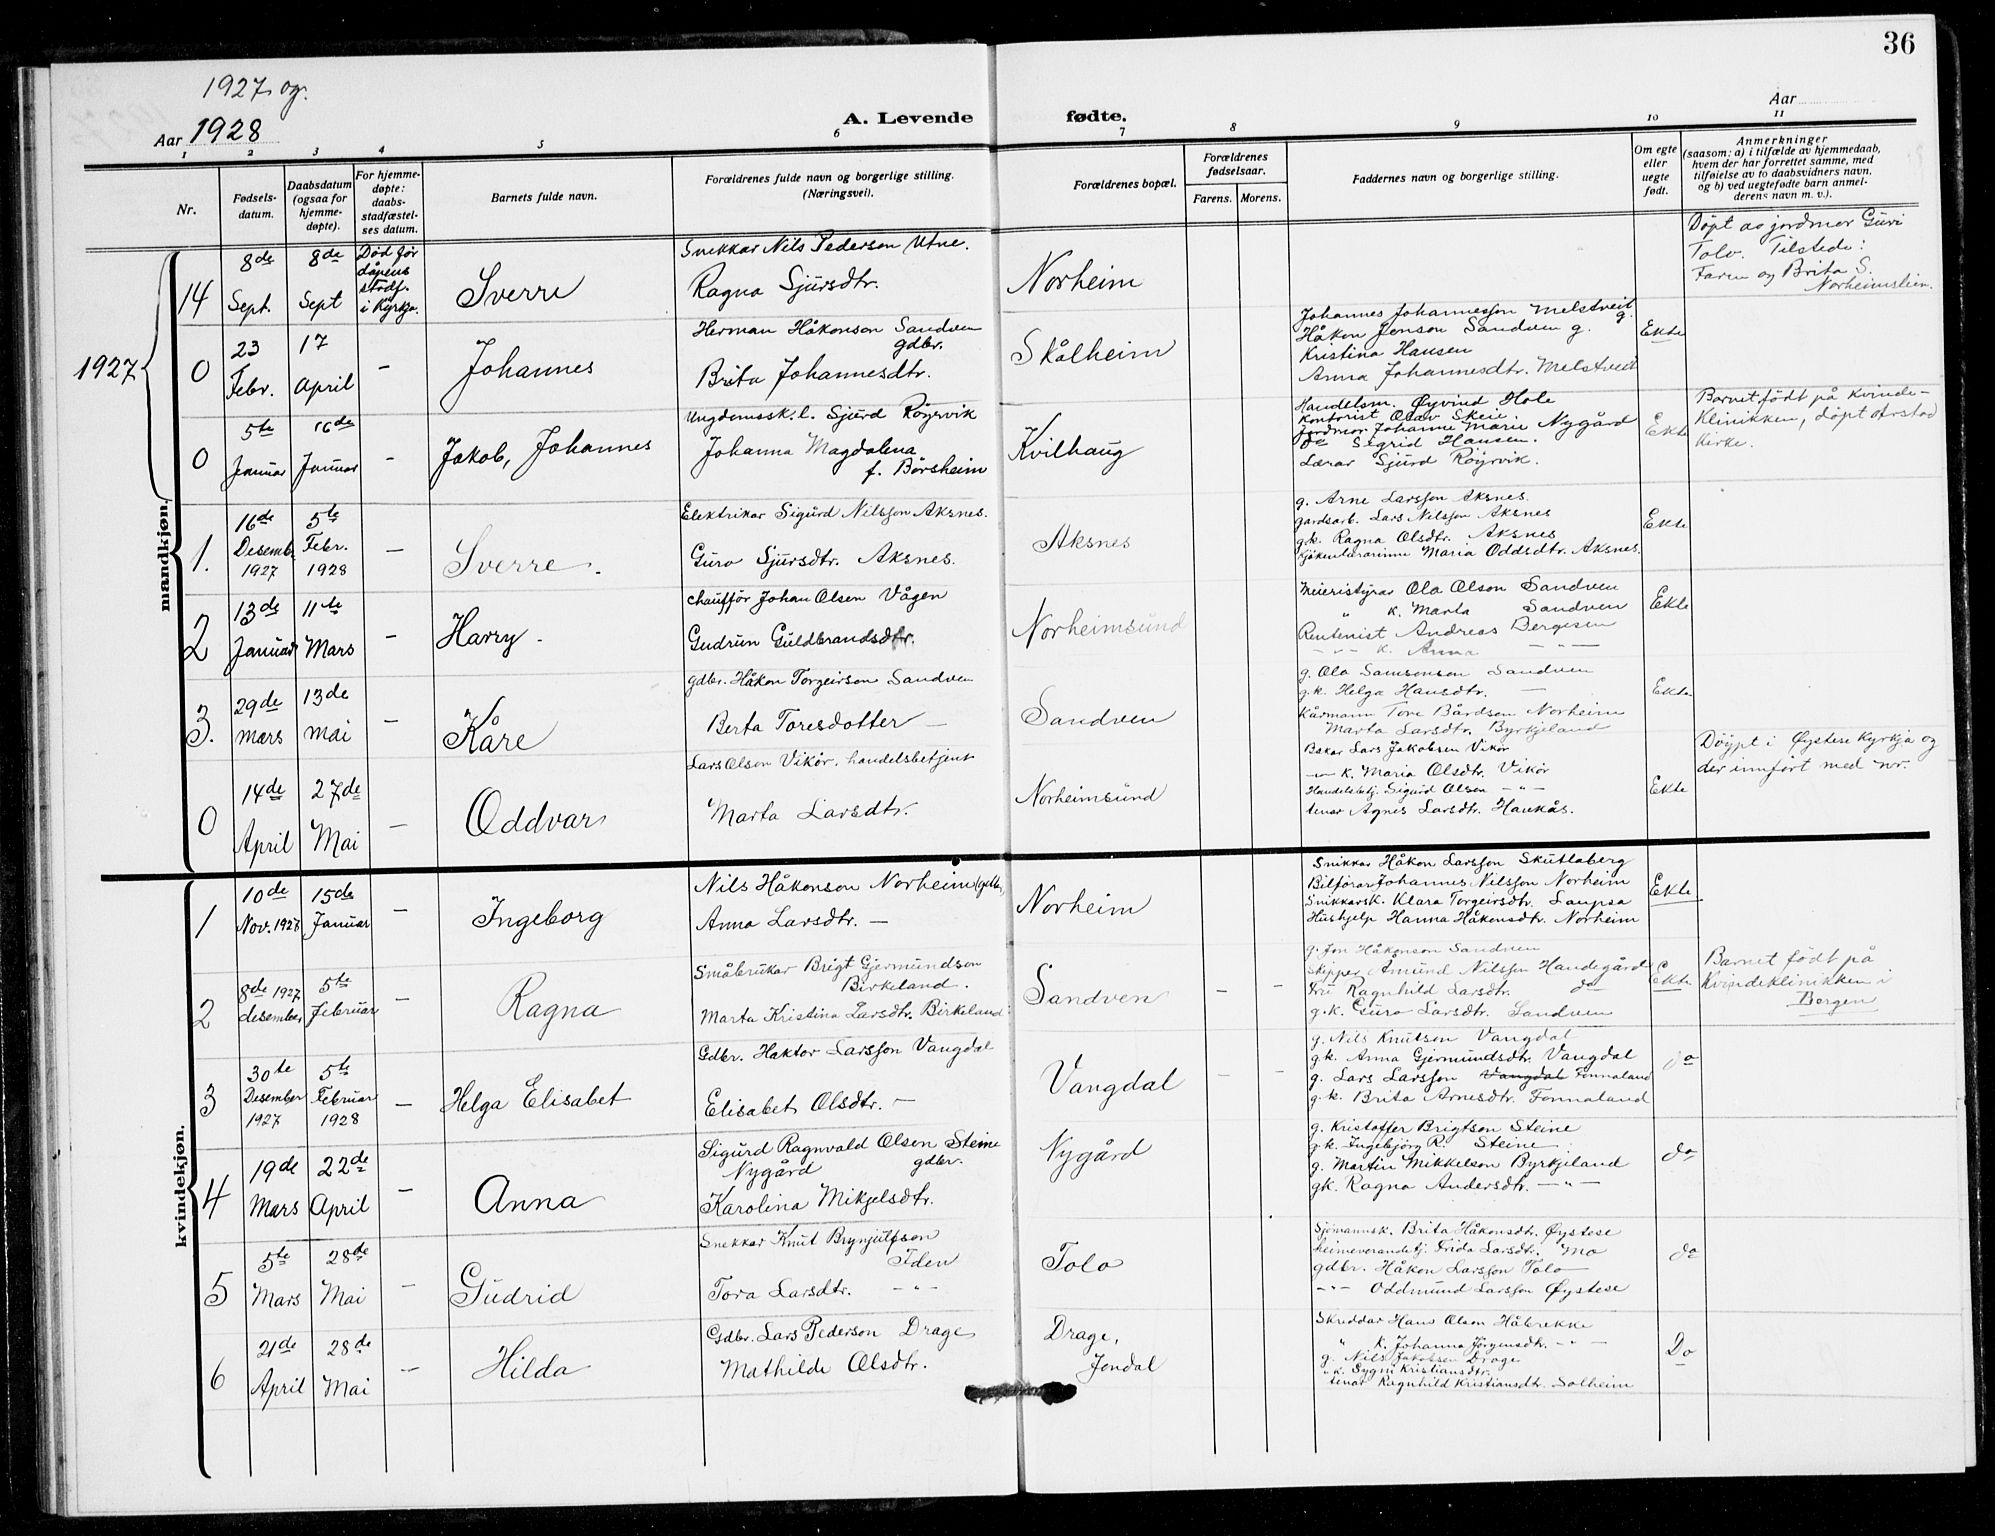 36
1927 og
Aar 1928
A. Levende fødte.
Aar
1 2 3 4 5 6 7 8 9 10 11
Nr.
Fødsels-
datum.
Daabsdatum
(ogsaa for
hjemme-
døpte).
For hjemme-
døpte:
daabs-
stadfæstel-
ses datum.
Barnets fulde navn.
Forældrenes fulde navn og borgerlige stilling.
(Næringsvei).
Forældrenes bopæl.
Forældrenes
fødselsaar.
Farens. Morens.
Faddernes navn og borgerlige stilling.
Om egte
eller
uegte
født.
Anmerkninger
(saasom: a) i tilfælde av hjemmedaab,
hvem der har forrettet samme, med
tilføielse av to daabsvidners navn,
og b) ved uegtefødte barn anmel-
derens navn m. v.).
1927
mandkjøn.
14
8de
Sept.
8de
Sept
Död för
dåpens
stadf.
i Kyrkja.
Sverre
Snekkar Nils Pederson Utne.
Ragna Sjursdtr.
Norheim
Döpt av jordmor Guri
Tolo. Tilstede:
Faren og Brita S.
Norheimslein.
0
23
Febr.
17
April
-
Johannes
Herman Håkonson Sandven
gdbr.
Brita Johannesdtr.
Skålheim
Johannes Johannesson Melstveit
g.
Håkon Jonson Sandven g.
Kristina Hansen
Anna Johannesdtr. Melstveit
Ekte
0
5te
Januar
16de
Januar
-
Jakob, Johannes
Ungdomssk. l. Sjurd Röyrvik
Johanna Magdalena
f. Börsheim
Kvilhaug
Handelsm. Øyvind Hole
Kontorist Olav Skeie.
Jordmor Johanne Marie Nygård
do Sigrid Hansen.
Lærar Sjurd Röyrvik.
Ekte
Barnet födt på Kvinde-
Klinikken, döpt Årstad
Kirke.
1.
16de
Desemb.
1927
5te
Febr.
1928
-
Sverre.
Elektrikar Sigurd Nilsson Aksnes.
Guro Sjursdtr. Aksnes.
Aksnes
g. Arne Larsson Aksnes.
gardsarb. Lars Nilsson Aksnes
gk. Ragna Olsdtr. Aksnes
Kjökenlærarinne Maria Oddsdtr. Aksnes.
Ekte
2
13de
Januar
11te
Mars
-
Harry.
Chaufför Johan Olsen Vågen
Gudrun Guldbrandsdtr.
Norheimsund
Meieristyrar Ola Olson Sandven
" k. Marta Sandven
Rentenist Andreas Bergesen
-"- k. Anna -"-
Ekte
3.
29de
Mars
13de
Mai
-
Kåre
gdbr. Håkon Torgeirson Sandven
Berta Toresdotter -
Sandven
g. Ola Samsonson Sandven
g.k. Helga Hansdtr. -
Kårmann Tore Bårdson Norheim
Marta Larsdtr. Byrkjeland
Ekte
0
14de
April
27de
Mai
-
Oddvar
Lars Olson Vikör, handelsbetjent
Marta Larsdtr.
Norheimsund
Bakar Lars Jakobsen Vikör
-"- k. Maria Olsdtr. Vikör
Handelsbetj. Sigurd Olsen -"-
tenar Agnes Larsdtr. Haukås.
Ekte
Döypt i Øystese Kyrkja og
der innfört med nr.
kvindekjøn.
1
10de
Nov. 1927
15de
Januar
-
Ingeborg
Nils Håkonson Norheim (gdbr.
Anna Larsdtr. -
Norheim
Snikkar Håkon Larsson Skutlaberg
Bilförar Johannes Nilsson Norheim
Snikkarsk. Klara Torgeirsdtr. Laupsa
Hushjelp Hanna Håkonsdtr. Norheim
Ekte
2
8de 1927
desember
5te
Februar
-
Ragna
Småbrukar Brigt Gjermundson
Birkeland.
Marta Kristina Larsdtr. Birkeland
Sandven
- -
g. Jon Håkonson Sandven
Skipper Amund Nilsson Handegård
Fru Ragnhild Larsdtr. do
g.k. Guro Larsdtr. Sandven
Ekte
Barnet födt på
Kvindeklinikken i
Bergen
3
30te
Desember
1927
5te
Februar
1928
-
Helga Elisabet
Gdbr. Haktor Larsson Vangdal
Elisabet Olsdtr. -
Vangdal
- -
g. Nils Knutson Vangdal
gk. Anna Gjermundsdtr. Vangdal
g. Lars Larsson Vangdal Fonnaland
g.k. Brita Arnesdtr. Fonnaland
do
4
19de
Mars
22de
April
-
Anna
Sigurd Ragnvald Olsen Steine
Nygård gdbr.
Karolina Mikjelsdtr.
Nygård
g. Kristoffer Brigtson Steine
g.k. Ingebjörg R. Steine
g. Martin Mikkelson Byrkjeland
gk. Ragna Andersdtr. -"-
do
5
5te
Mars
28de
Mai
-
Gudrid
Snekkar Knut Brynjulfson
Iden
Tora Larsdtr. -"-
Tolo
Sjömannsk. Brita Håkonsdtr. Øystese
heimeverandetj. Frida Larsdtr. Mo
gdbr. Håkon Larsson Tolo
-"- Oddmund Larsson Øystese
do
6
21de
April
28de
Mai
-
Hilda
Gdbr. Lars Pederson Drage
Mathilde Olsdtr.
Drage,
Jondal
Skreddar Hans Olson Håbrekke
" k. Johanna Jörgensdtr. -"-
g. Nils Jakobsen Drage
"k. Sygni Kristiansdtr.
tenar Ragnhild Kristiansdtr. Solheim
Do